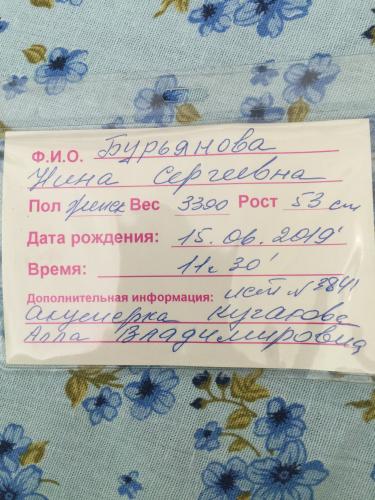 Ф.И.О. Бурьянова
Нина Сергеевна
Пол женск Вес 3300 Рост 53 см
Дата рождения: 15.06.2019г
Время: 11ч 30'
Дополнительная информация: ист N 3841
Акушерка Кугакова
Алла Владимировна